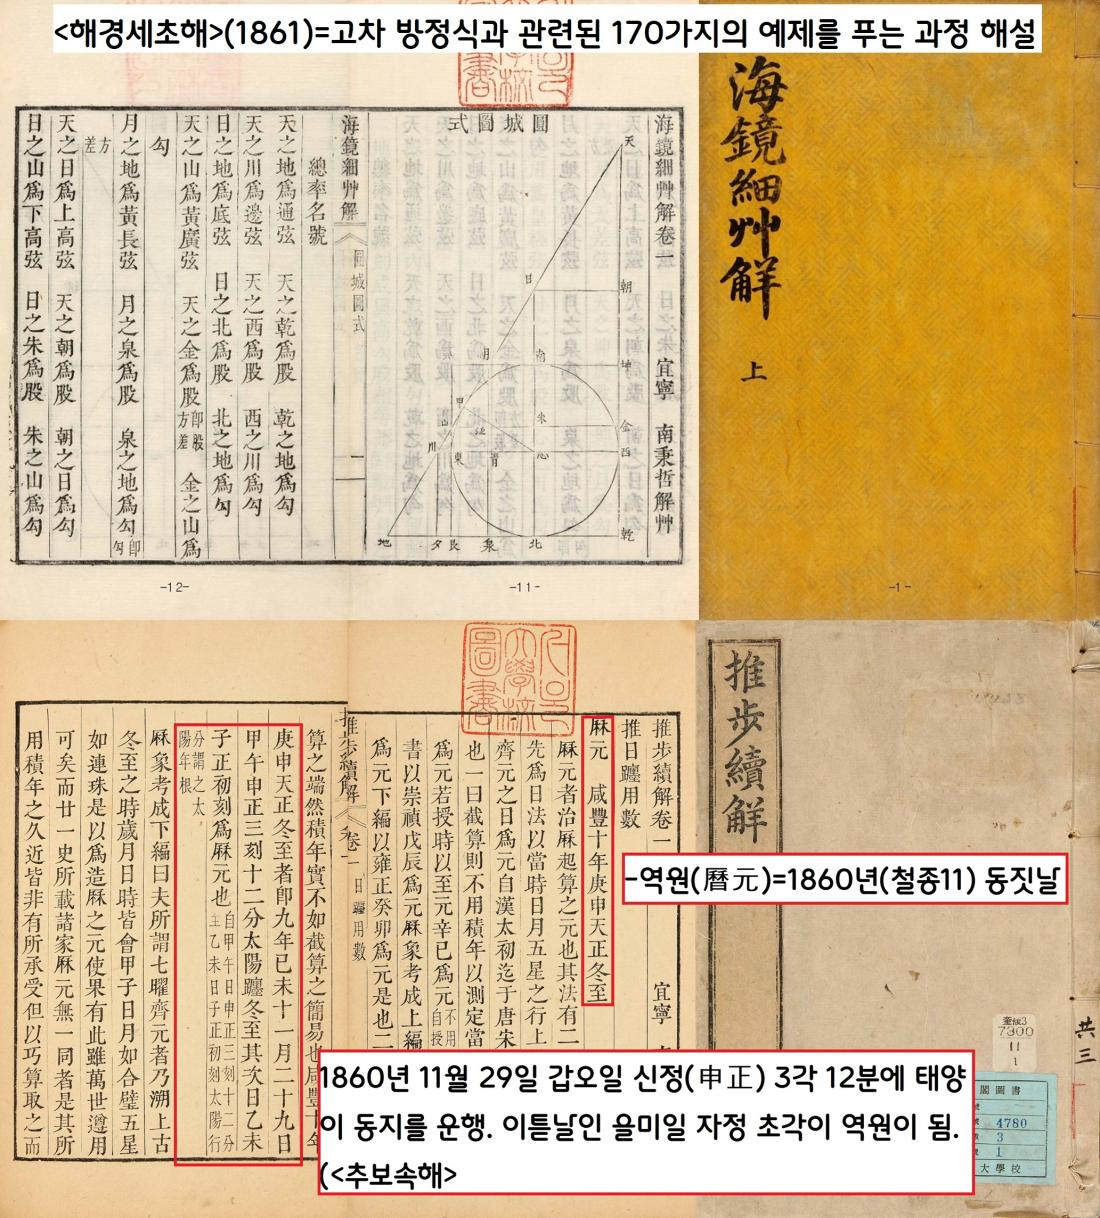 <해경세초해>(1861)=고차 방정식과 관련된 170가지의 예제를 푸는 과정 해설
海鏡細艸解
上
-1-
海鏡細艸解卷一 宜寧 南秉哲解艸
圓城圖式
天
日
朝
南
地
甲
朱
金
西
川
東
靑
心
乾
北
泉
艮
夕
地
-11-
海鏡細艸解 圓城圖式 一
總率名號
天之地爲通弦 天之乾爲股 乾之地爲勾
天之川爲邊弦 天之西爲股 西之川爲勾
日之地爲底弦 日之北爲股 北之地爲勾
天之山爲黃廣弦 天之金爲股 卽股方差 金之山爲
勾
月之地爲黃長弦 月之泉爲股 泉之地爲勾 卽勾
方差
天之日爲上高弦 天之朝爲股 朝之日爲勾
日之山爲下高弦 日之朱爲股 朱之山爲勾
-12-
推步續解
推步續解卷一 宜寧
推日躔用數
厤元 咸豐十年庚申天正冬至
厤元者治厤起算之元也其法有二
先爲日法以當時日月五星之行上
齊元之日爲元自漢太初迄于唐宋
也一曰截算則不用積年以測定當
爲元若授時以至元辛巳爲元 不用自授
書以崇禎戊辰爲元厤象考成上編
爲元下編以雍正癸卯爲元是也二
推步續解 卷一 日躔用數
算之端然積年實不如截算之簡易也咸豐十年
庚申天正冬至者卽九年己未十一月二十九日
甲午申正三刻十二分太陽躔冬至其次日乙未
子正初刻爲厤元也 自甲午日申正三刻十二分至乙未日子正初刻太陽行
分謂之太陽年根
厤象考成下編曰夫所謂七曜齊元者乃溯上古
冬至之時歲月日時皆會甲子日月如合璧五星
如連珠是以爲造厤之元使果有此雖萬世遵用
可矣而廿一史所載諸家厤元無一同者是其所
用積年之久近皆非有所承受但以巧算取之而
-역원(曆元)=1860년(철종11) 동짓날
1860년 11월 29일 갑오일 신정(申正) 3각 12분에 태양
이 동지를 운행. 이튿날인 을미일 자정 초각이 역원이 됨.
(<추보속해>
奎版3
7300
11
1
共三
閣圖書
4780
3
1
大學校